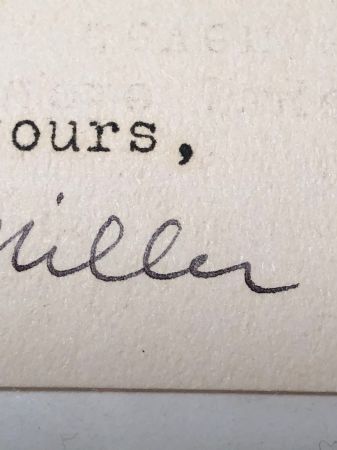 yours,
Miller